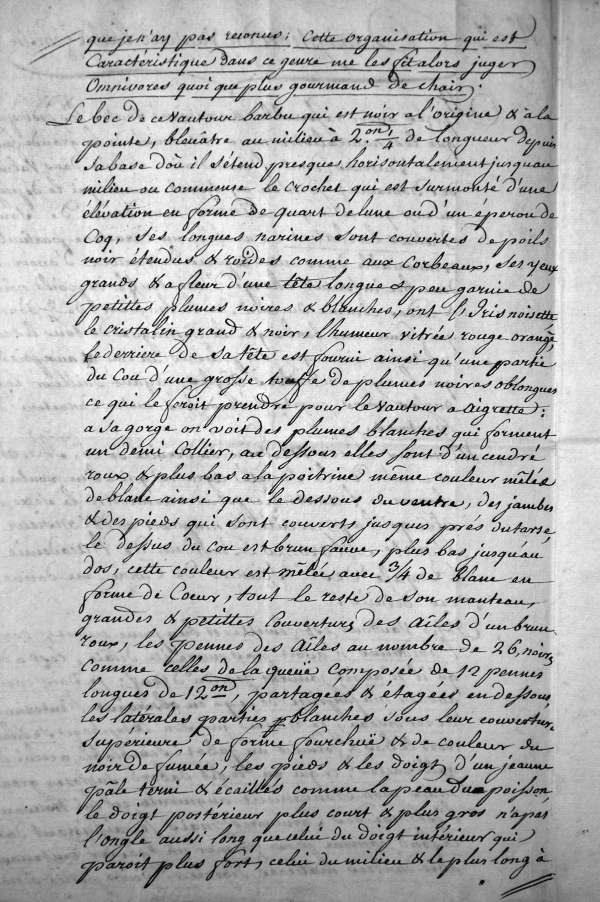 que je n'ay pas reconus; Cette organisation qui est
Caractéristique dans ce genre me les fit alors juger
Omnivores quoi que plus gourmand de chair.
Le bec de ce vautour barbu qui est noir a l'origine & à la
pointe, bleuâtre au milieu à 2.on 1/4 de longueur depuis
sa base d'où il s'étend presque horisontalement jusqu'au
milieu ou commence le crochet qui est surmonté d'une
élévation en forme de quart de lune ou d'un éperon de
Coq, ses longues narines sont couvertes de poils
noir étendus & roides comme aux Corbeaux, ses yeux
grands & a fleur d'une tête longue & peu garnie de
petittes plumes noires & blanches, ont l'Iris noisette
le cristalin grand & noir, l'humeur vitrée rouge orangé,
le derriere de sa tête est fourni ainsi qu'une partie
du Cou d'une grosse touffe de plumes noires oblongues
ce qui le feroit prendre pour le vautour a aigrette:
a sa gorge on voit des plumes blanches qui forment
un demi Collier, au dessous elles sont d'un cendré
roux & plus bas a la poitrine même couleur mêlés
de blanc ainsi que le dessous du ventre, des jambes
& des pieds qui sont couverts jusques prés du tarse
le dessus du cou est brun fauve, plus bas jusqu'au
dos, cette couleur est mêlée avec 3/4 de blanc en
forme de Coeur, tout le reste de son manteau,
grandes & petittes Couvertures des Aîles d'un brun
roux, les pennes des Aîles au nombre de 26, noires
comme celles de la queüe composée de 12 pennes
longues de 12on, partagées & étagées en dessous
les latérales parties blanches sous leur couverture
supérieure de forme fourchüe & de couleur du
noir de fumée, les pieds & les doigts d'un jeaune
pâle terni & écaillés comme la peau du poisson
le doigt postérieur plus court & plus gros n'a pas
l'ongle aussi long que celui du doigt intérieur qui
paroit plus fort, celui du milieu & le plus long à